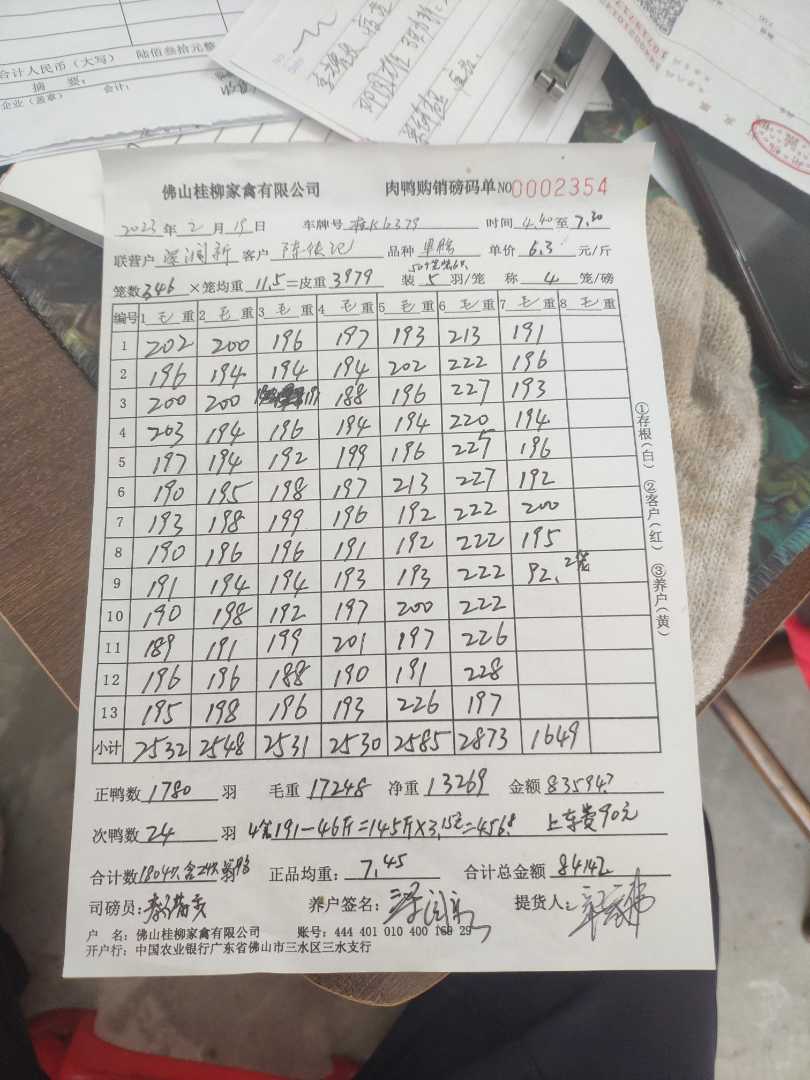 合计人民币(大写) 陆佰叁拾元整
摘 要:
企业(盖章) 会计:
佛山桂柳家禽有限公司 肉鸭购销磅码单 NO 0002354
2023年2月19日 车牌号 时间 4.40至7.20
联营户 客户 品种 单价 6.3 元/斤
笼数 346 ×笼均重 11.5 =皮重 3979 装 5 羽/笼 称 4 笼/磅
编号 1 毛重 2 毛重 3 毛重 4 毛重 5 毛重 6 毛重 7 毛重 8 毛重
1 202 200 196 197 193 213 191
2 196 194 194 194 202 222 196
3 200 200 191 188 196 227 193
4 203 194 196 194 194 220 194
5 197 194 192 199 196 225 196
6 190 195 198 197 213 227 192
7 193 198 199 196 192 222 200
8 190 196 196 191 192 222 195
9 191 194 194 193 193 222 92. 2笼
10 190 198 192 197 200 222
11 189 191 199 201 197 226
12 196 196 188 190 191 228
13 195 198 196 193 226 197
小计 2532 2548 2531 2530 2585 2873 1649
正鸭数 1780 羽 毛重 17248 净重 13269 金额 83594.7
次鸭数 24 羽 4笼191-46斤=145斤×3.15元=456.8 上车费90元
合计数 1804只 含24只 羽 正品均重: 7.45 合计总金额 84142
司磅员: 养户签名: 提货人:
户 名: 佛山桂柳家禽有限公司 账号: 444 401 010 400 169 29
开户行: 中国农业银行广东省佛山市三水区三水支行
①存根(白) ②客户(红) ③养户(黄)